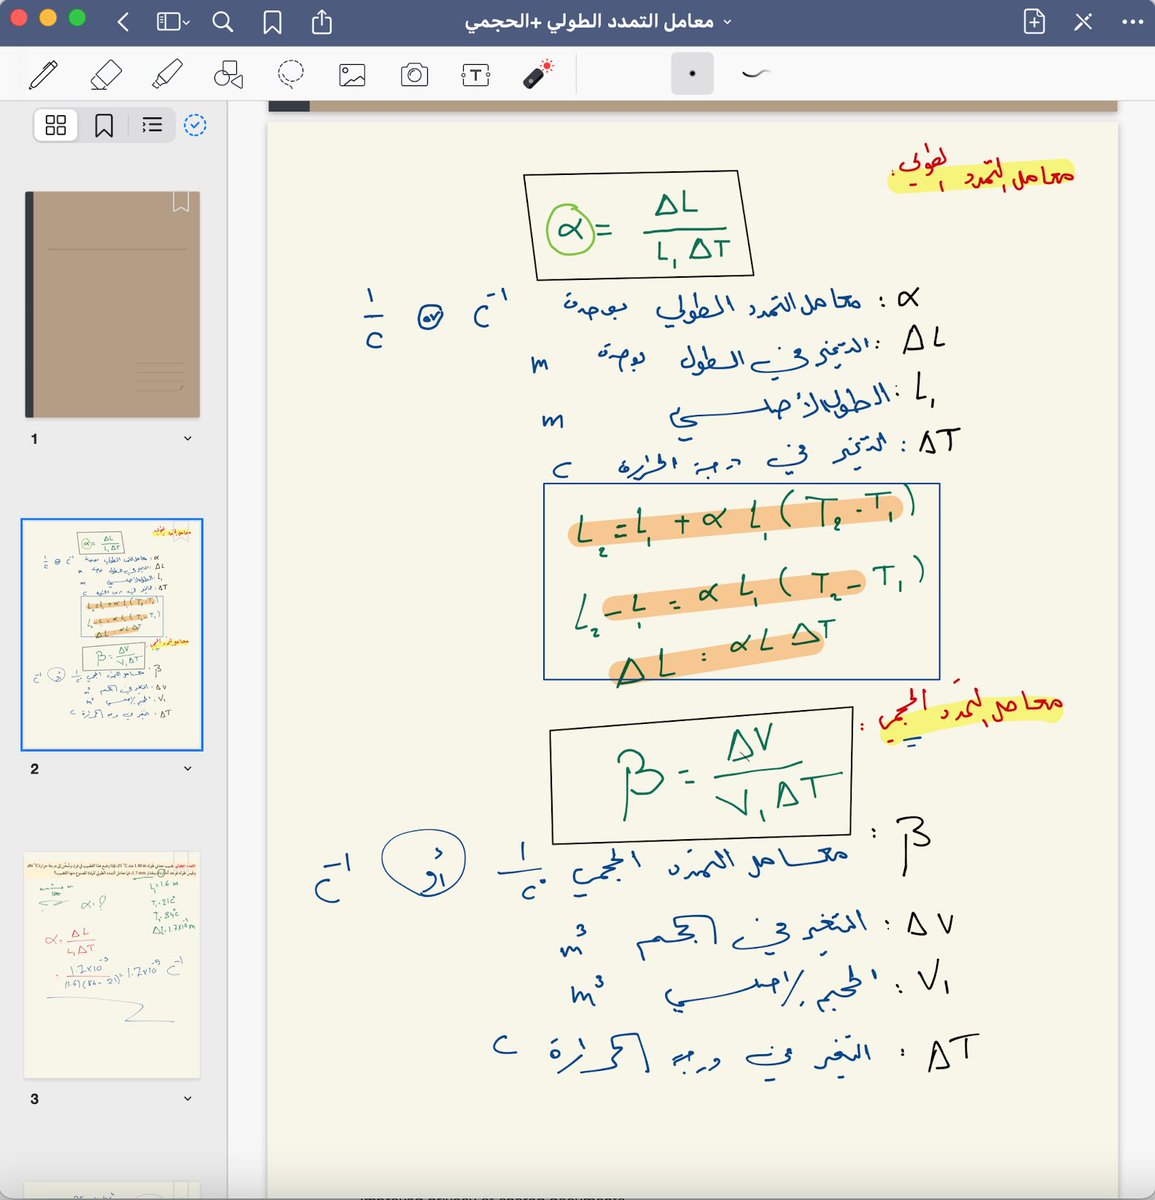 معامل التمدد الطولي +الحجمي
معامل التمدد الطولي :
α = ΔL / L₁ ΔT
α : معامل التمدد الطولي بوحدة C⁻¹ or 1/C
ΔL : التغير في الطول بوحدة m
L₁ : الطول الأصلي m
ΔT : التغير في درجة الحرارة C
L₂ = L₁ + α L₁ ( T₂ - T₁ )
L₂ - L₁ = α L₁ ( T₂ - T₁ )
ΔL = α L ΔT
معامل التمدد الحجمي :
β = ΔV / V₁ ΔT
β : معامل التمدد الحجمي 1/C° أو C⁻¹
ΔV : التغير في الحجم m³
V₁ : الحجم الأصلي m³
ΔT : التغير في درجة الحرارة C
1
2
3